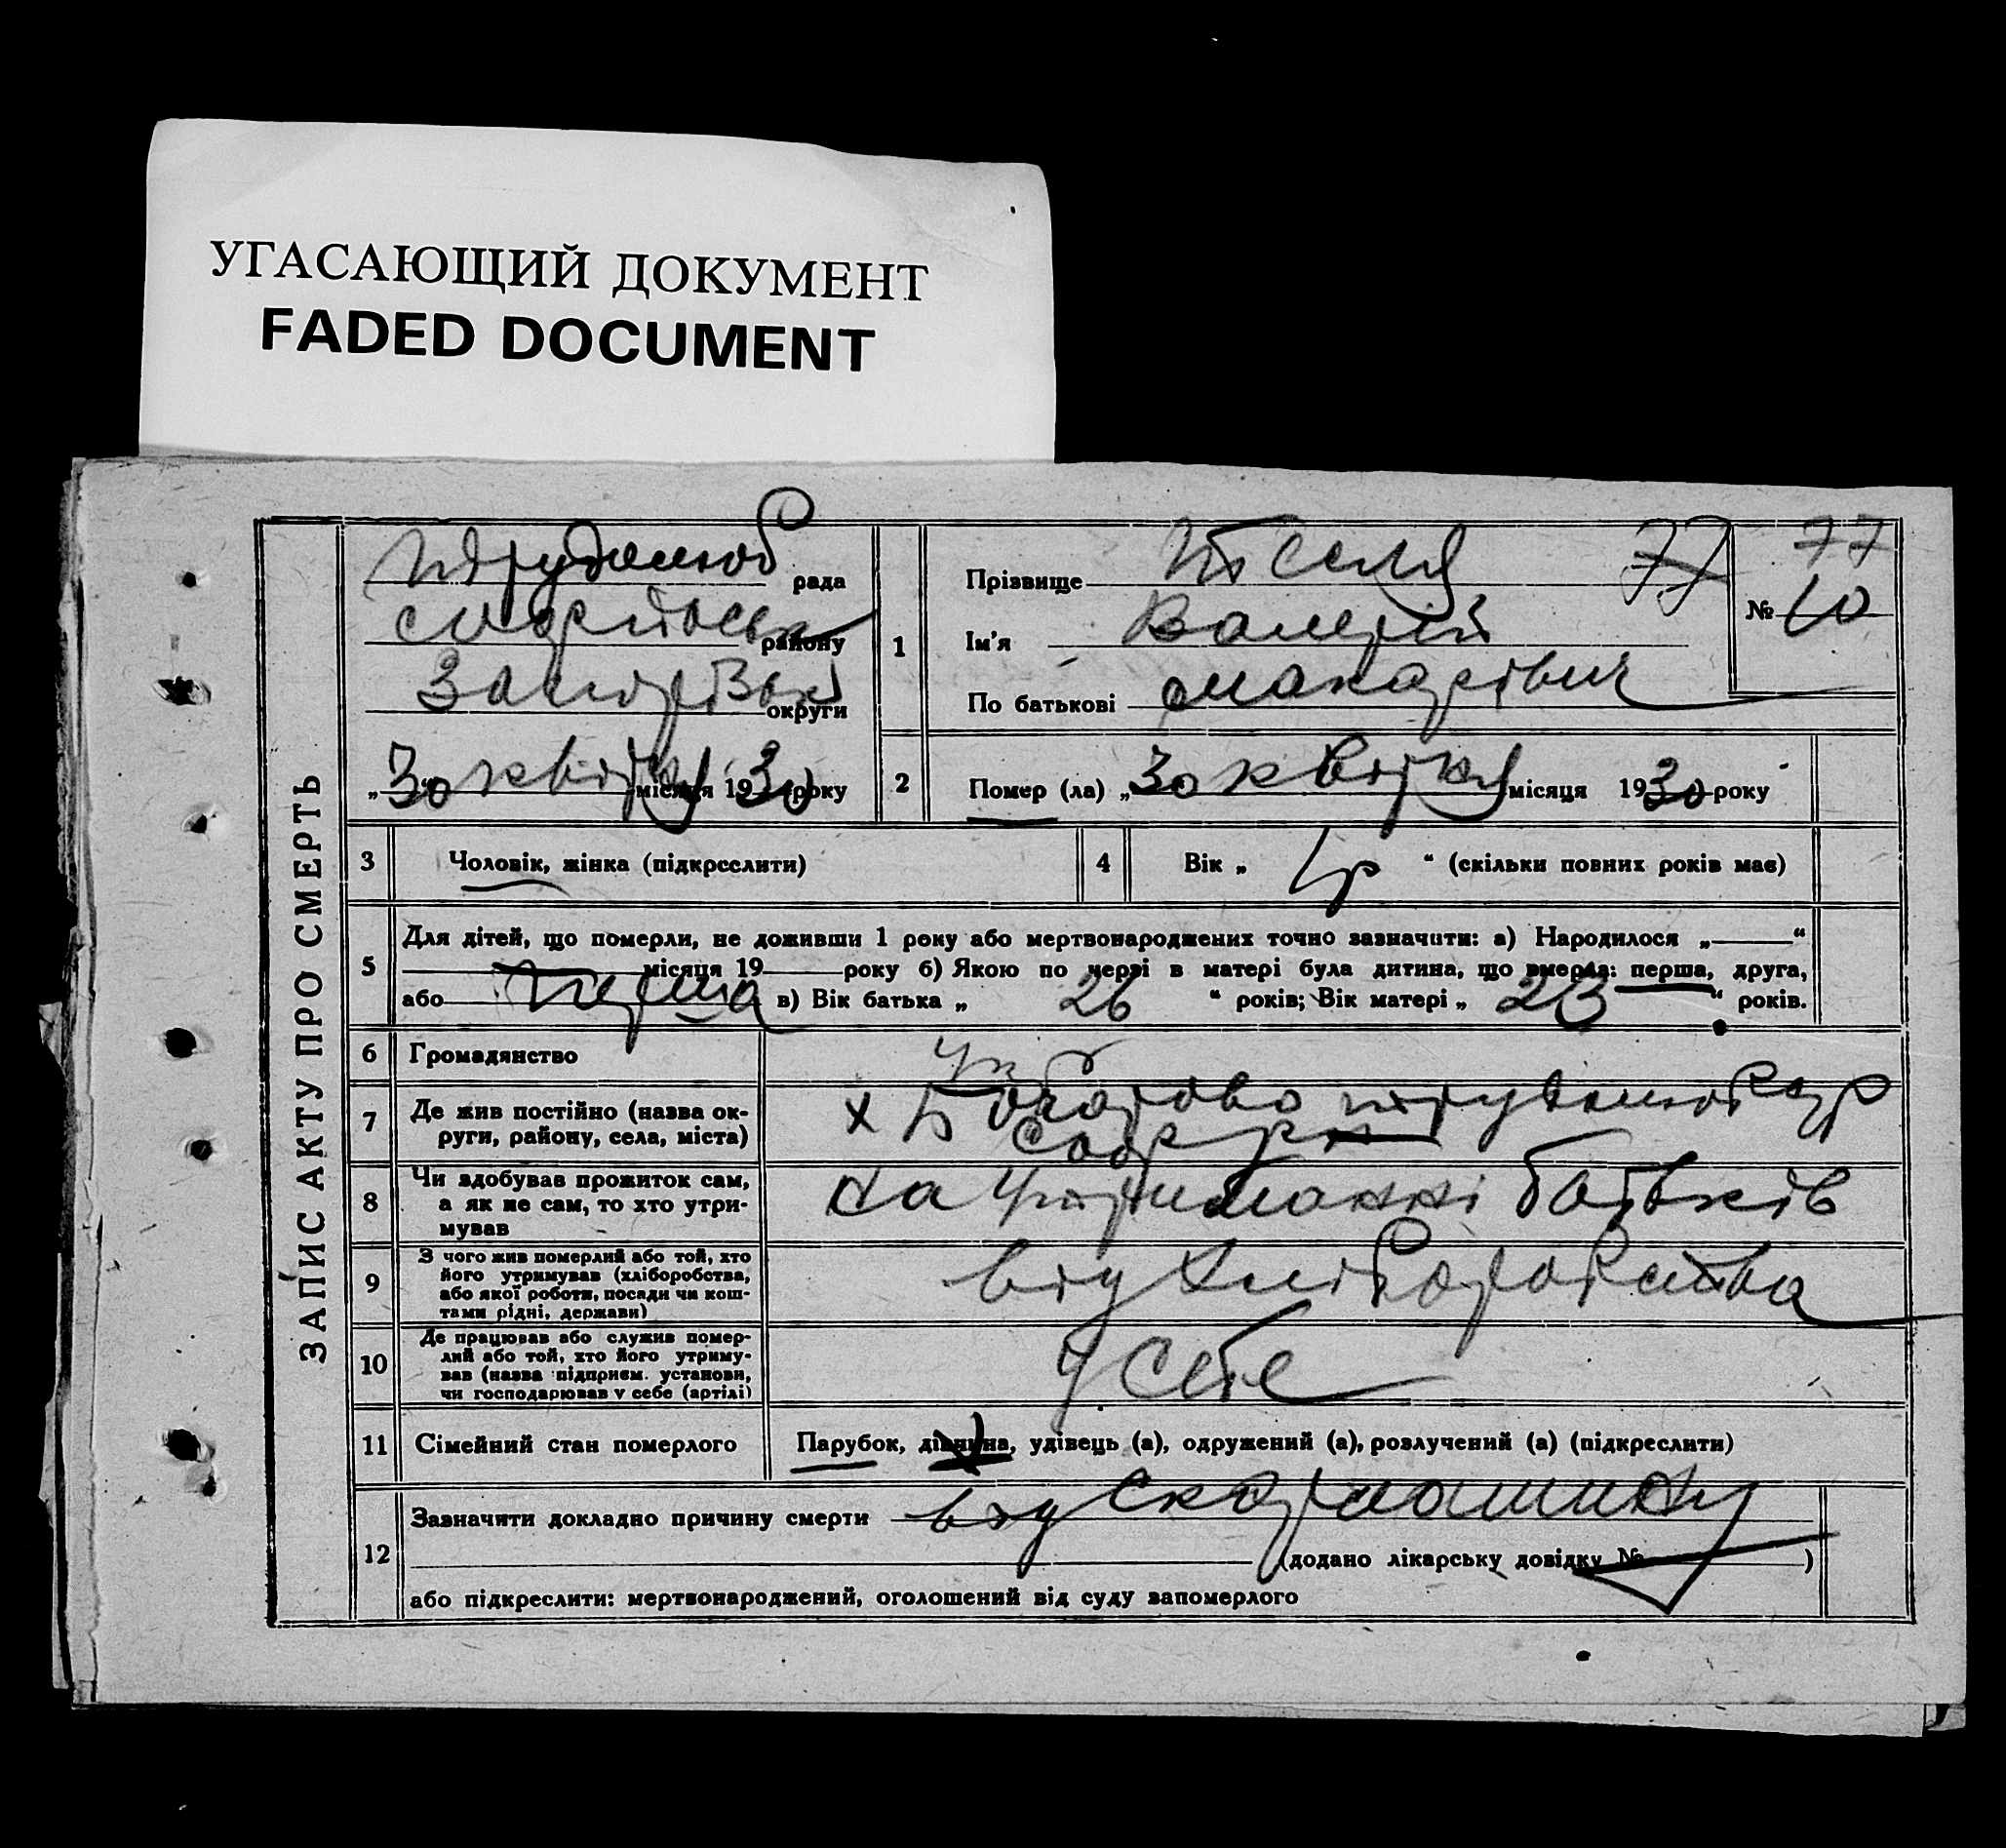 УГАСАЮЩИЙ ДОКУМЕНТ
FADED DOCUMENT
ЗАПИС АКТУ ПРО СМЕРТЬ
рада
району
округи
„30“ квітня місяця 1930 року
1
Прізвище
77
Ім'я Валерій
По батькові Макарівич
77
№ 10
2
Помер (ла) „30 квітня місяця 1930 року
3
Чоловік, жінка (підкреслити)
4
Вік „ 1 р “ (скільки повних років має)
5
Для дітей, що померли, не доживши 1 року або мертвонароджених точно зазначити: а) Народилося „ “
місяця 19 року б) Якою по черзі в матері була дитина, що вмерла: перша, друга,
або перша в) Вік батька „ 26 “ років; Вік матері „ 23 “ років.
6
Громадянство Укр
7
Де жив постійно (назва ок-
руги, району, села, міста)
х
8
Чи здобував прожиток сам,
а як не сам, то хто утри-
мував
на утриманні батьків
9
З чого жив померлий або той, хто
його утримував (хліборобства,
або якої роботи, посади чи кош-
тами рідні, держави)
від хліборобства
10
Де працював або служив помер-
лий або той, хто його утриму-
вав (назва підприєм. установи,
чи господарював у себе (артілі)
У себе
11
Сімейний стан померлого
Парубок, дівчина, удівець (а), одружений (а), розлучений (а) (підкреслити)
12
Зазначити докладно причину смерти від скарлатини
(додано лікарську довідку № )
або підкреслити: мертвонароджений, оголошений від суду запомерлого